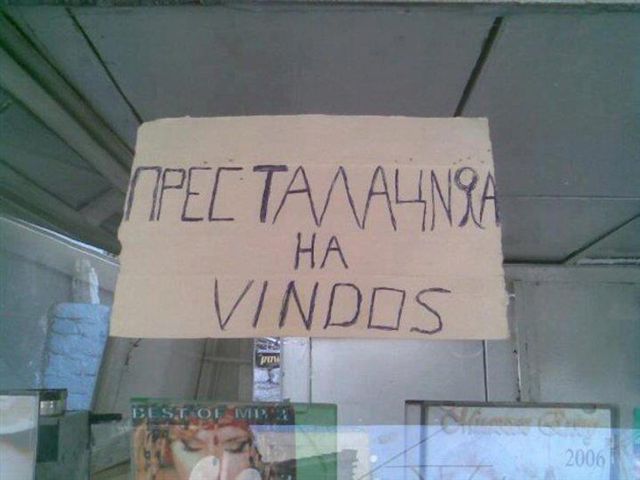 ПРЕСТАЛАЦИЯА
НА
VINDOS
BEST OF MP 3
2006